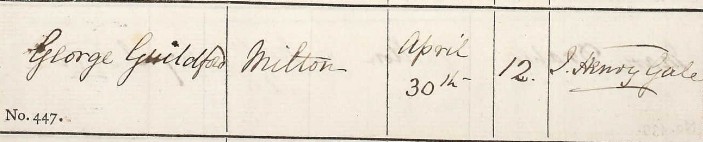 George Guildford Milton April 30th 12. J. Henry Gale
No. 447.